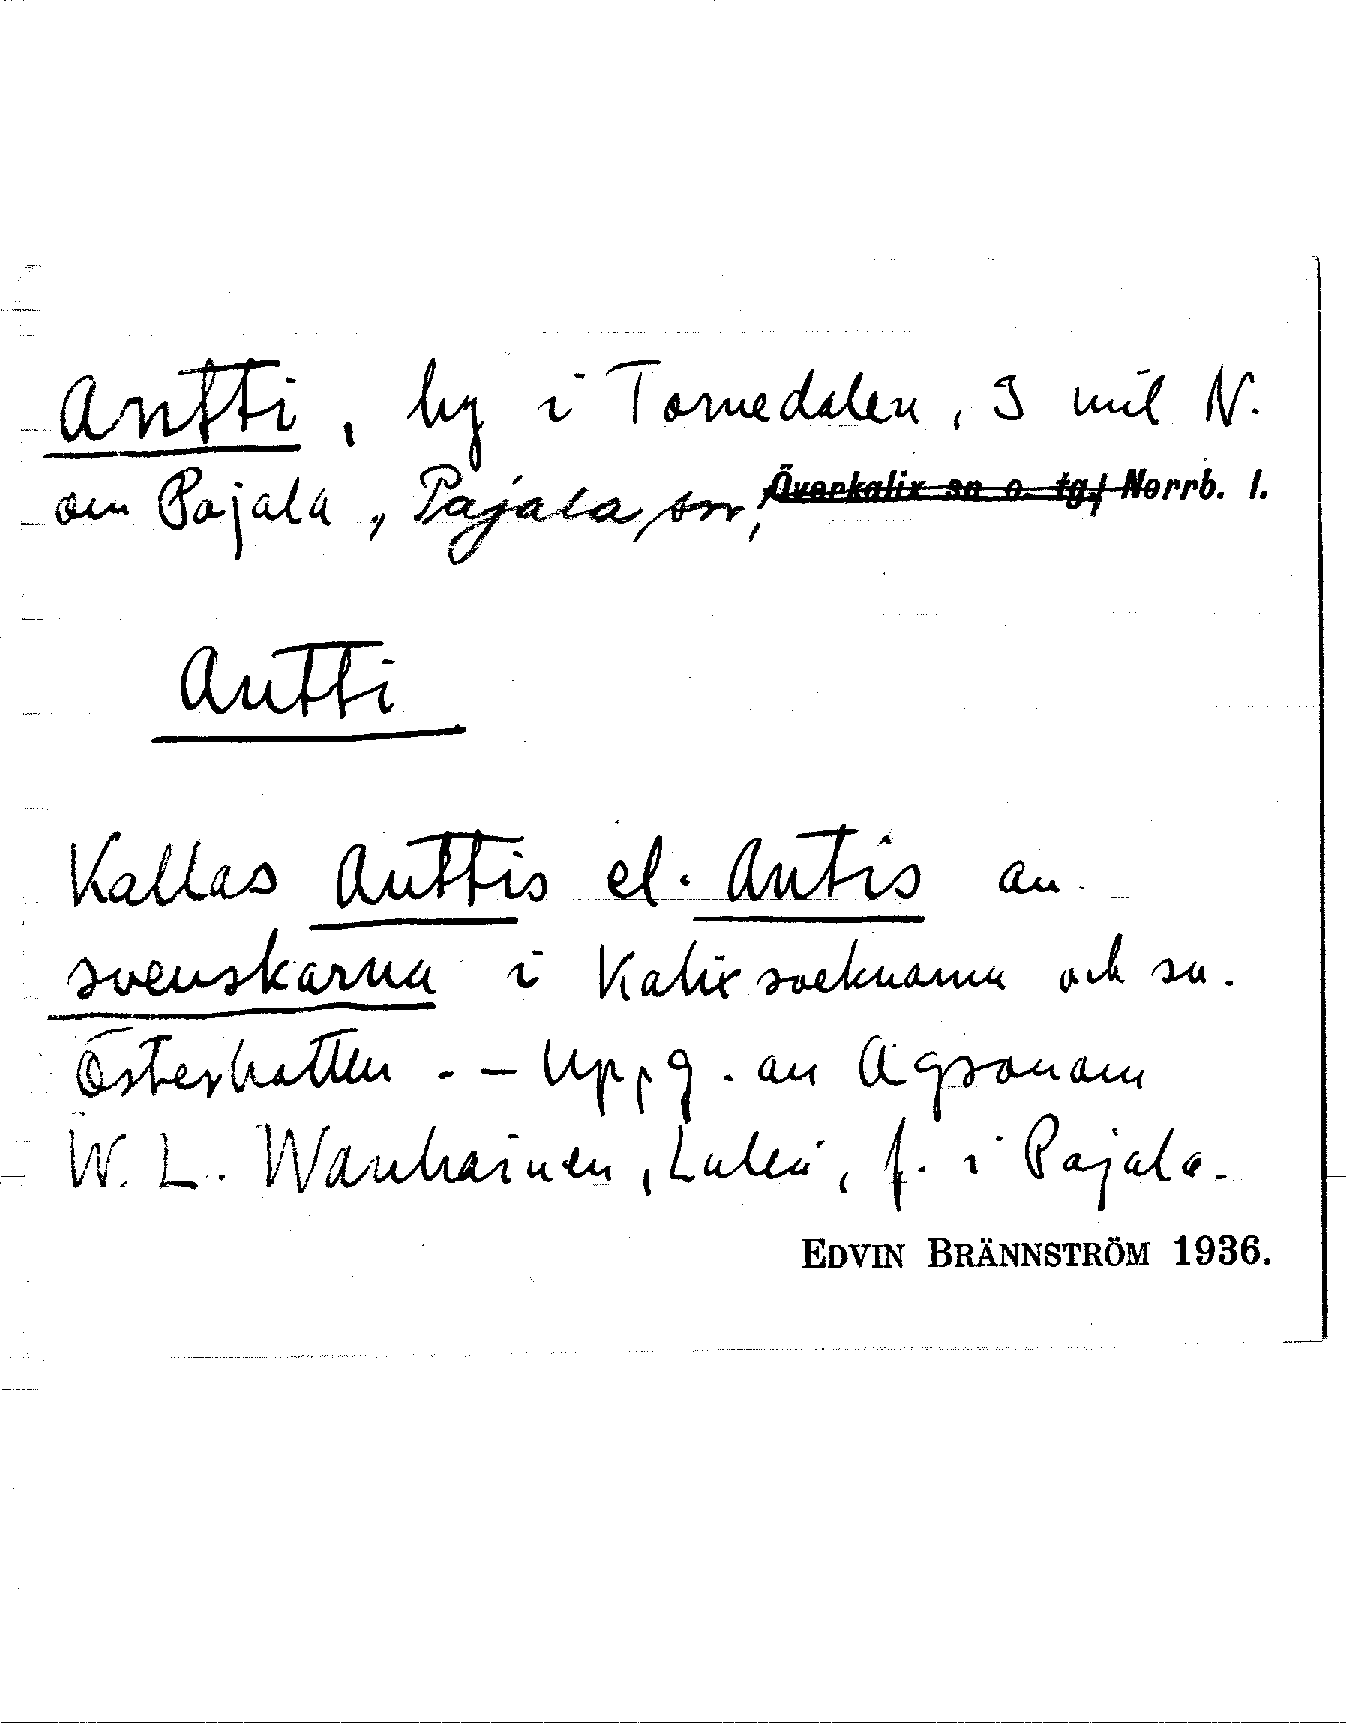 Antti, by i Tornedalen, 3 mil N.
om Pajala, Pajala sn, Överkalix sn o. tg., Norrb. l.
Antti
Kallas Anttis el. Antis av
svenskarna i Kalixsocknarna och sv.
Österbotten. – Uppg. av Agronom
W. L. Wanhainen, Luleå, f. i Pajala.
EDVIN BRÄNNSTRÖM 1936.